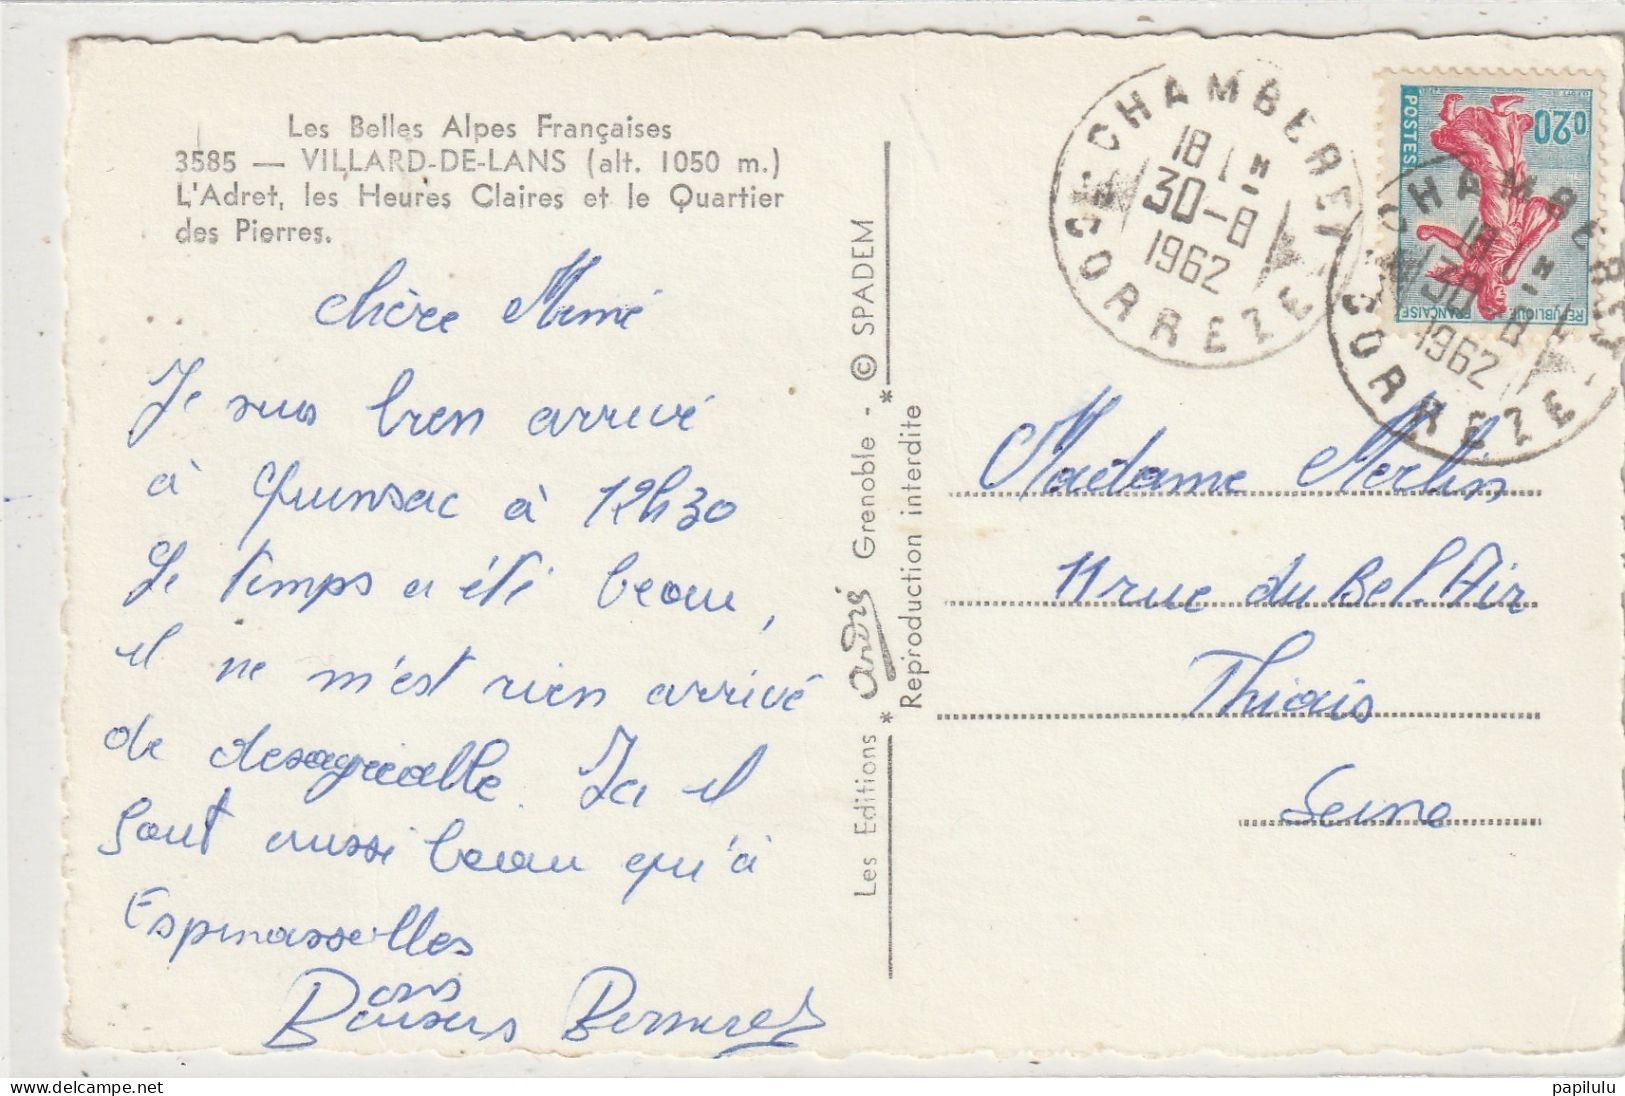 Les Belles Alpes Françaises
3585 — VILLARD-DE-LANS (alt. 1050 m.)
L'Adret, les Heures Claires et le Quartier
des Pierres.
chère Mémé
Je suis bien arrivé
à Quinsac à 12h30
Le temps a été beau,
il ne m'est rien arrivé
de desagréable. Ici il
fait aussi beau qu'à
Espinasselles
Bons
Baisers
Les Editions * André Grenoble - * © SPADEM
Reproduction interdite
CHAMBERET
18H
30-8
1962
CORREZE
POSTES
0,20
REPUBLIQUE FRANÇAISE
CHAMBERET
18H
30-8
1962
CORREZE
Madame Merlin
11 rue du Bel-Air
Thiais
Seine
delcampe.net
papilulu